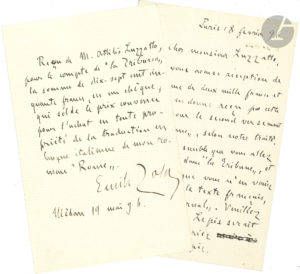 Reçu de M. Attilio Luzzatto,
pour le compte de "la Tribuna",
la somme de dix-sept cent cin-
quante francs, en un chèque,
qui solde le prix convenu
pour l'achat en toute pro-
priété de la traduction en
langue italienne de mon ro-
man "Rome".
Emile Zola
Médan 19 mai 96.
Paris 18 février 9
cher monsieur Luzzatto,
vous accuse réception de
me de deux mille francs et
en donne reçu par cette
sur le second versement
selon notre traité.
semble que vous allez
dans "la Tribuna", et
que vous n'en
le texte français,
Veuillez
Le pis serait